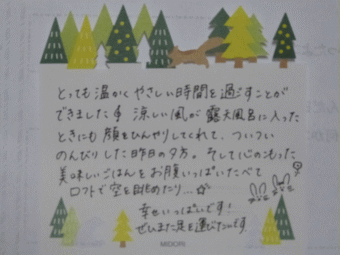 とっても温かくやさしい時間を過ごすことが
できました 涼しい風が露天風呂に入った
ときにも顔をひんやりしてくれて、ついつい
のんびりした昨日の夕方。そして心のこもった
美味しいごはんをお腹いっぱいたべて
ロフトで空を眺めたり...☆
幸せいっぱいです!
ぜひまた足を運びたいです
MIDORI